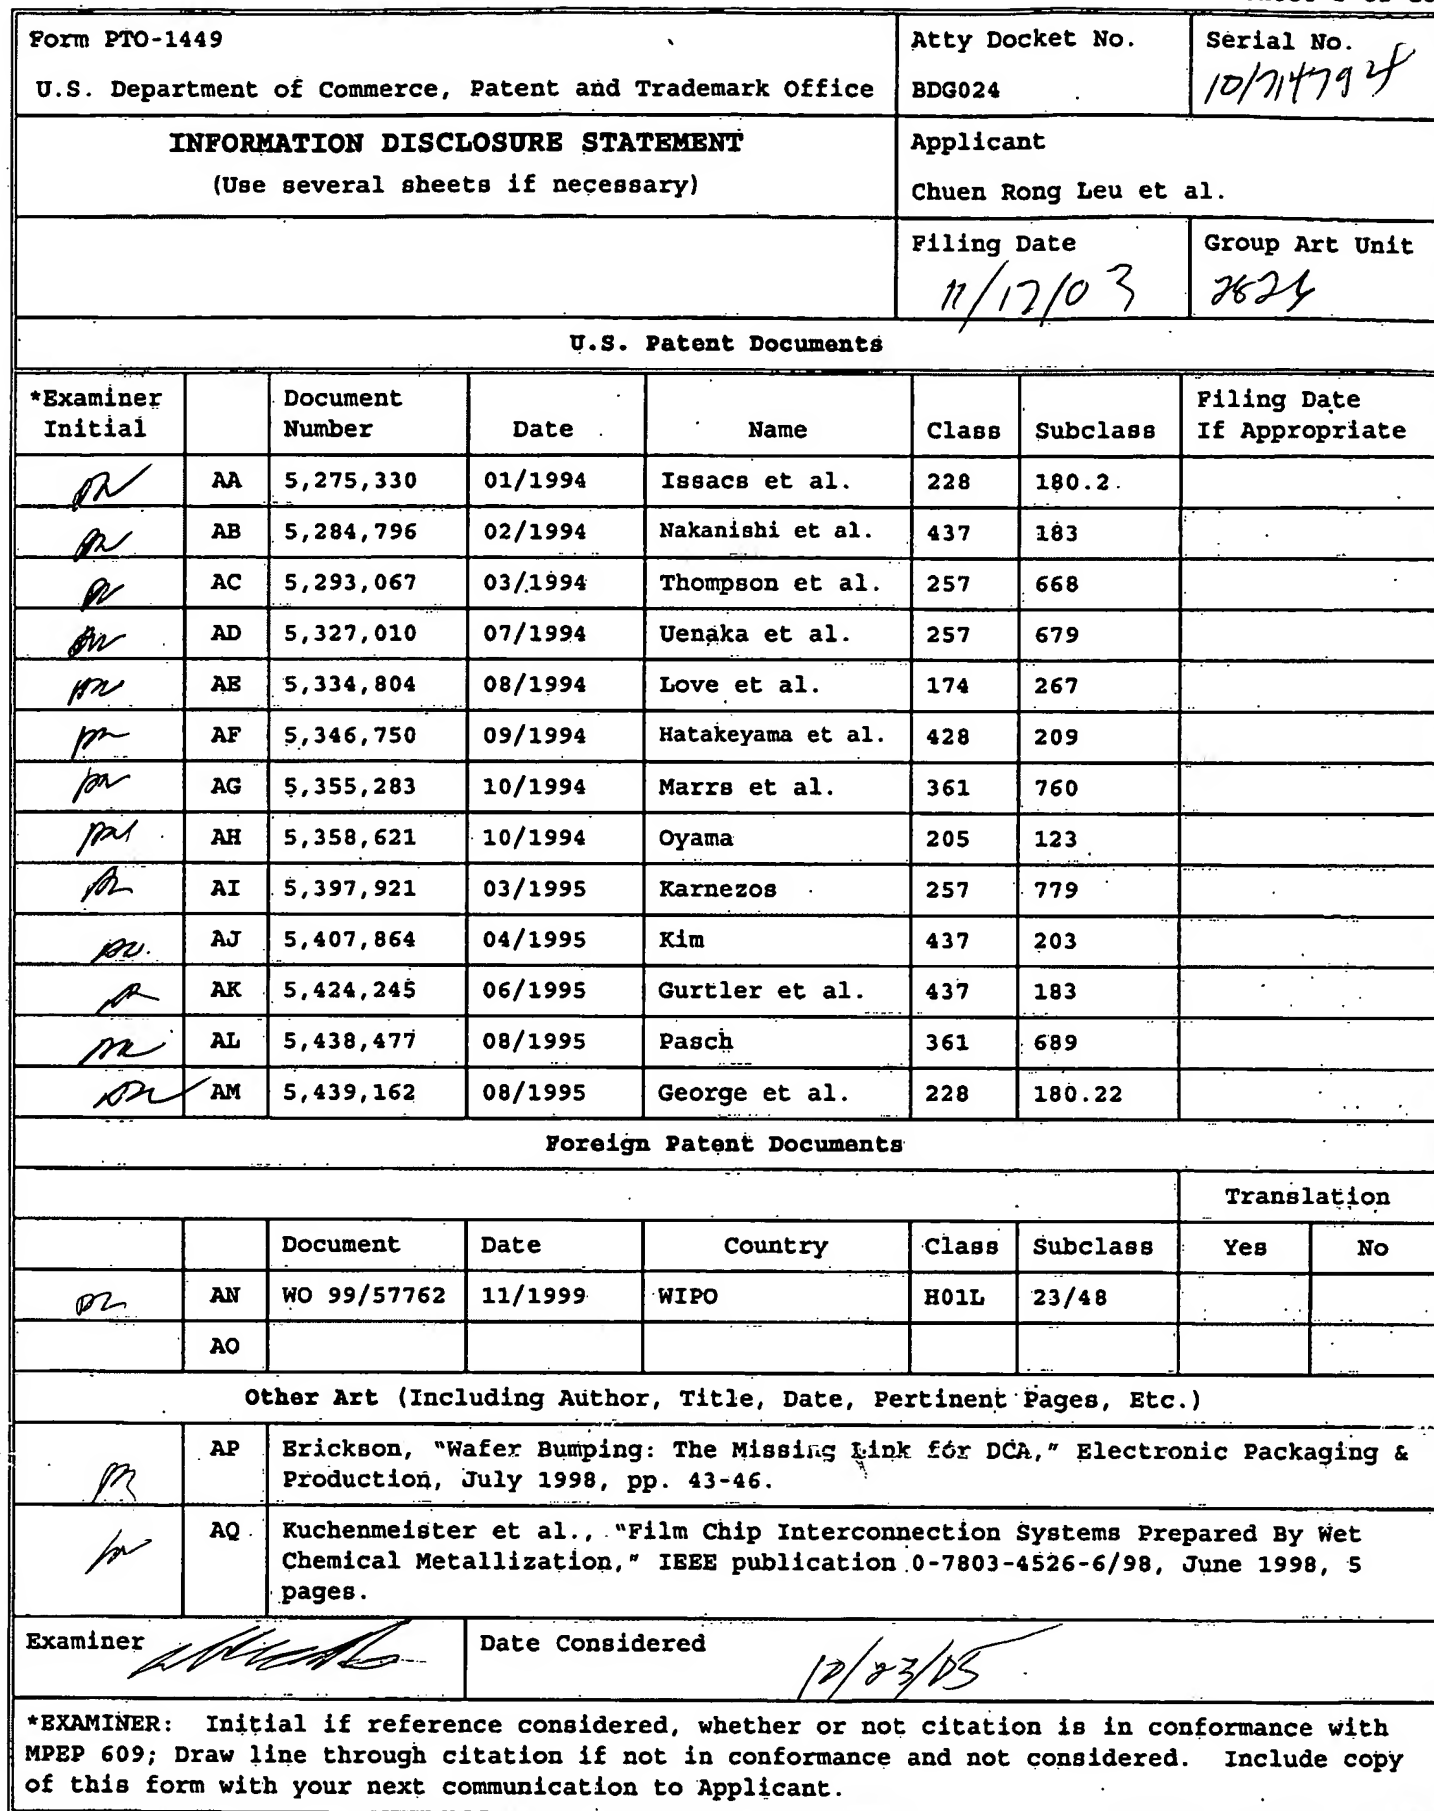 Form PTO-1449
U.S. Department of Commerce, Patent and Trademark Office
Atty Docket No.
BDG024
Serial No.
10/714794
INFORMATION DISCLOSURE STATEMENT
(Use several sheets if necessary)
Applicant
Chuen Rong Leu et al.
Filing Date
11/17/03
Group Art Unit
U.S. Patent Documents
*Examiner Initial Document Number Date Name Class Subclass Filing Date If Appropriate
AA 5,275,330 01/1994 Issacs et al. 228 180.2
AB 5,284,796 02/1994 Nakanishi et al. 437 183
AC 5,293,067 03/1994 Thompson et al. 257 668
AD 5,327,010 07/1994 Uenaka et al. 257 679
AE 5,334,804 08/1994 Love et al. 174 267
AF 5,346,750 09/1994 Hatakeyama et al. 428 209
AG 5,355,283 10/1994 Marrs et al. 361 760
AH 5,358,621 10/1994 Oyama 205 123
AI 5,397,921 03/1995 Karnezos 257 779
AJ 5,407,864 04/1995 Kim 437 203
AK 5,424,245 06/1995 Gurtler et al. 437 183
AL 5,438,477 08/1995 Pasch 361 689
AM 5,439,162 08/1995 George et al. 228 180.22
Foreign Patent Documents
Translation
Document Date Country Class Subclass Yes No
AN WO 99/57762 11/1999 WIPO H01L 23/48
AO
Other Art (Including Author, Title, Date, Pertinent Pages, Etc.)
AP Erickson, "Wafer Bumping: The Missing Link for DCA," Electronic Packaging &
Production, July 1998, pp. 43-46.
AQ Kuchenmeister et al., "Film Chip Interconnection Systems Prepared By Wet
Chemical Metallization," IEEE publication 0-7803-4526-6/98, June 1998, 5
pages.
Examiner
Date Considered
10/23/05
*EXAMINER: Initial if reference considered, whether or not citation is in conformance with
MPEP 609; Draw line through citation if not in conformance and not considered. Include copy
of this form with your next communication to Applicant.